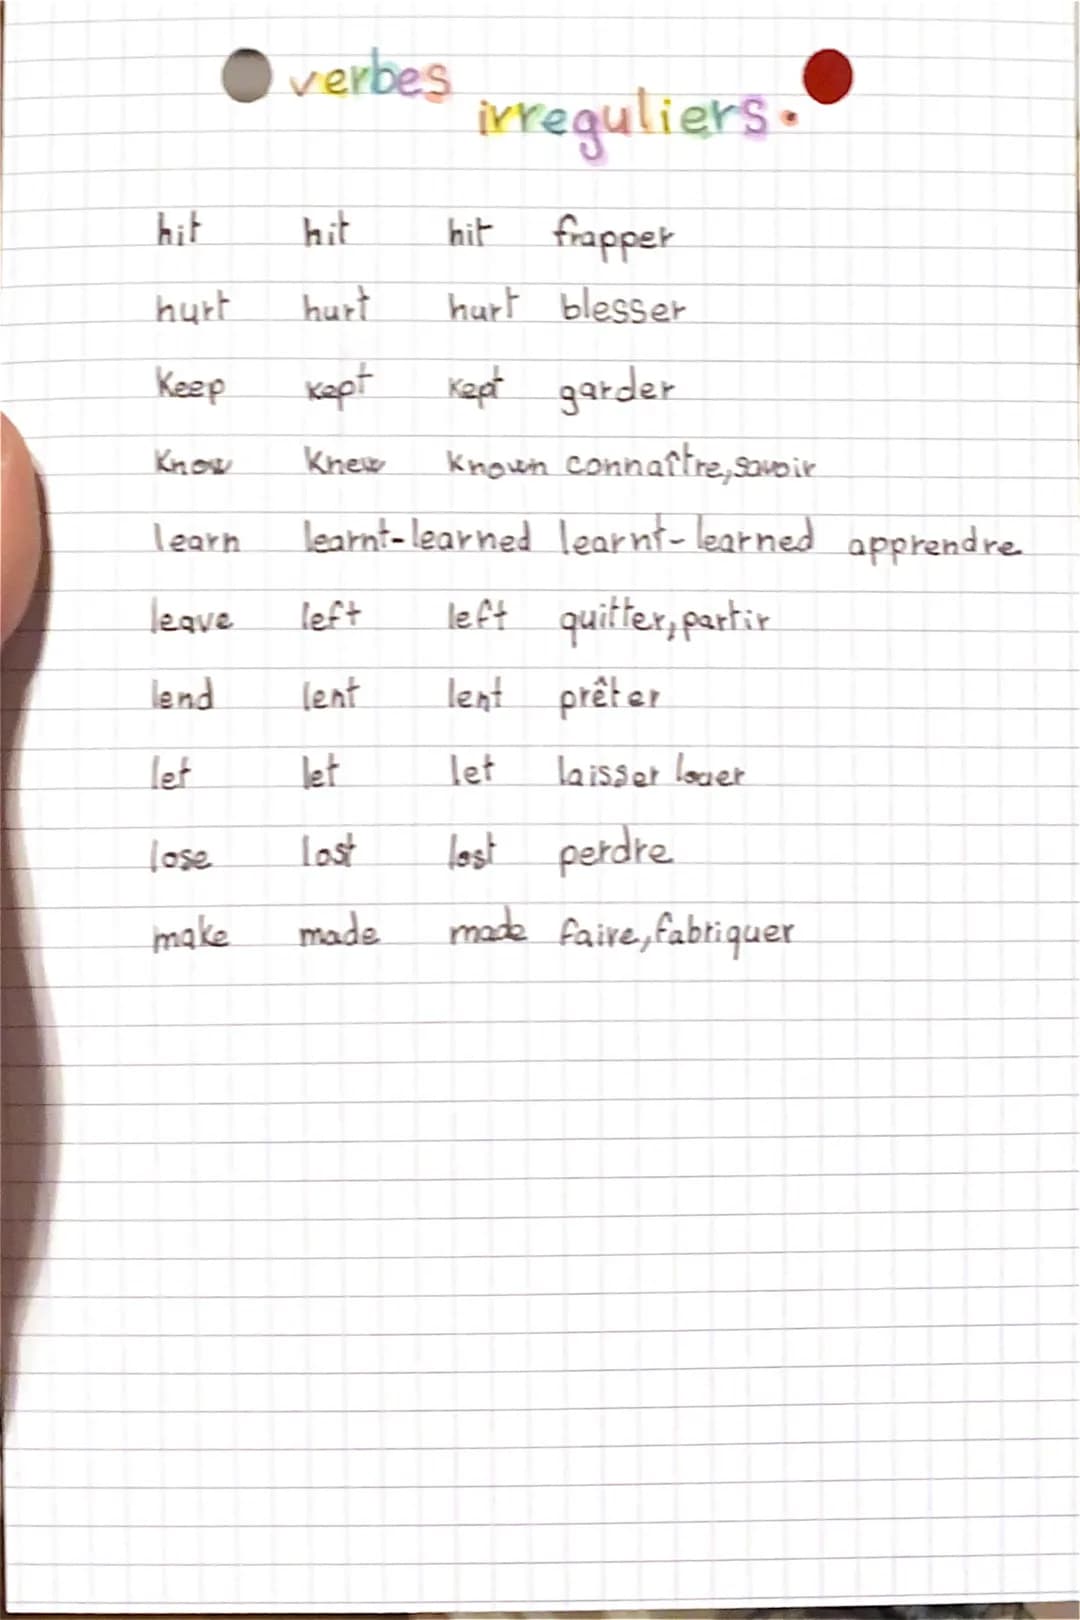 verbes
irreguliers.
hit hit hit frapper
hurt hurt hurt blesser
Keep kept kept garder
Know Knew Known connaître, savoir
learn learnt-learned learnt-learned apprendre
leave left left quitter, partir
lend lent lent prêter
let let let laisser louer
lose lost lost perdre
make made made faire, fabriquer